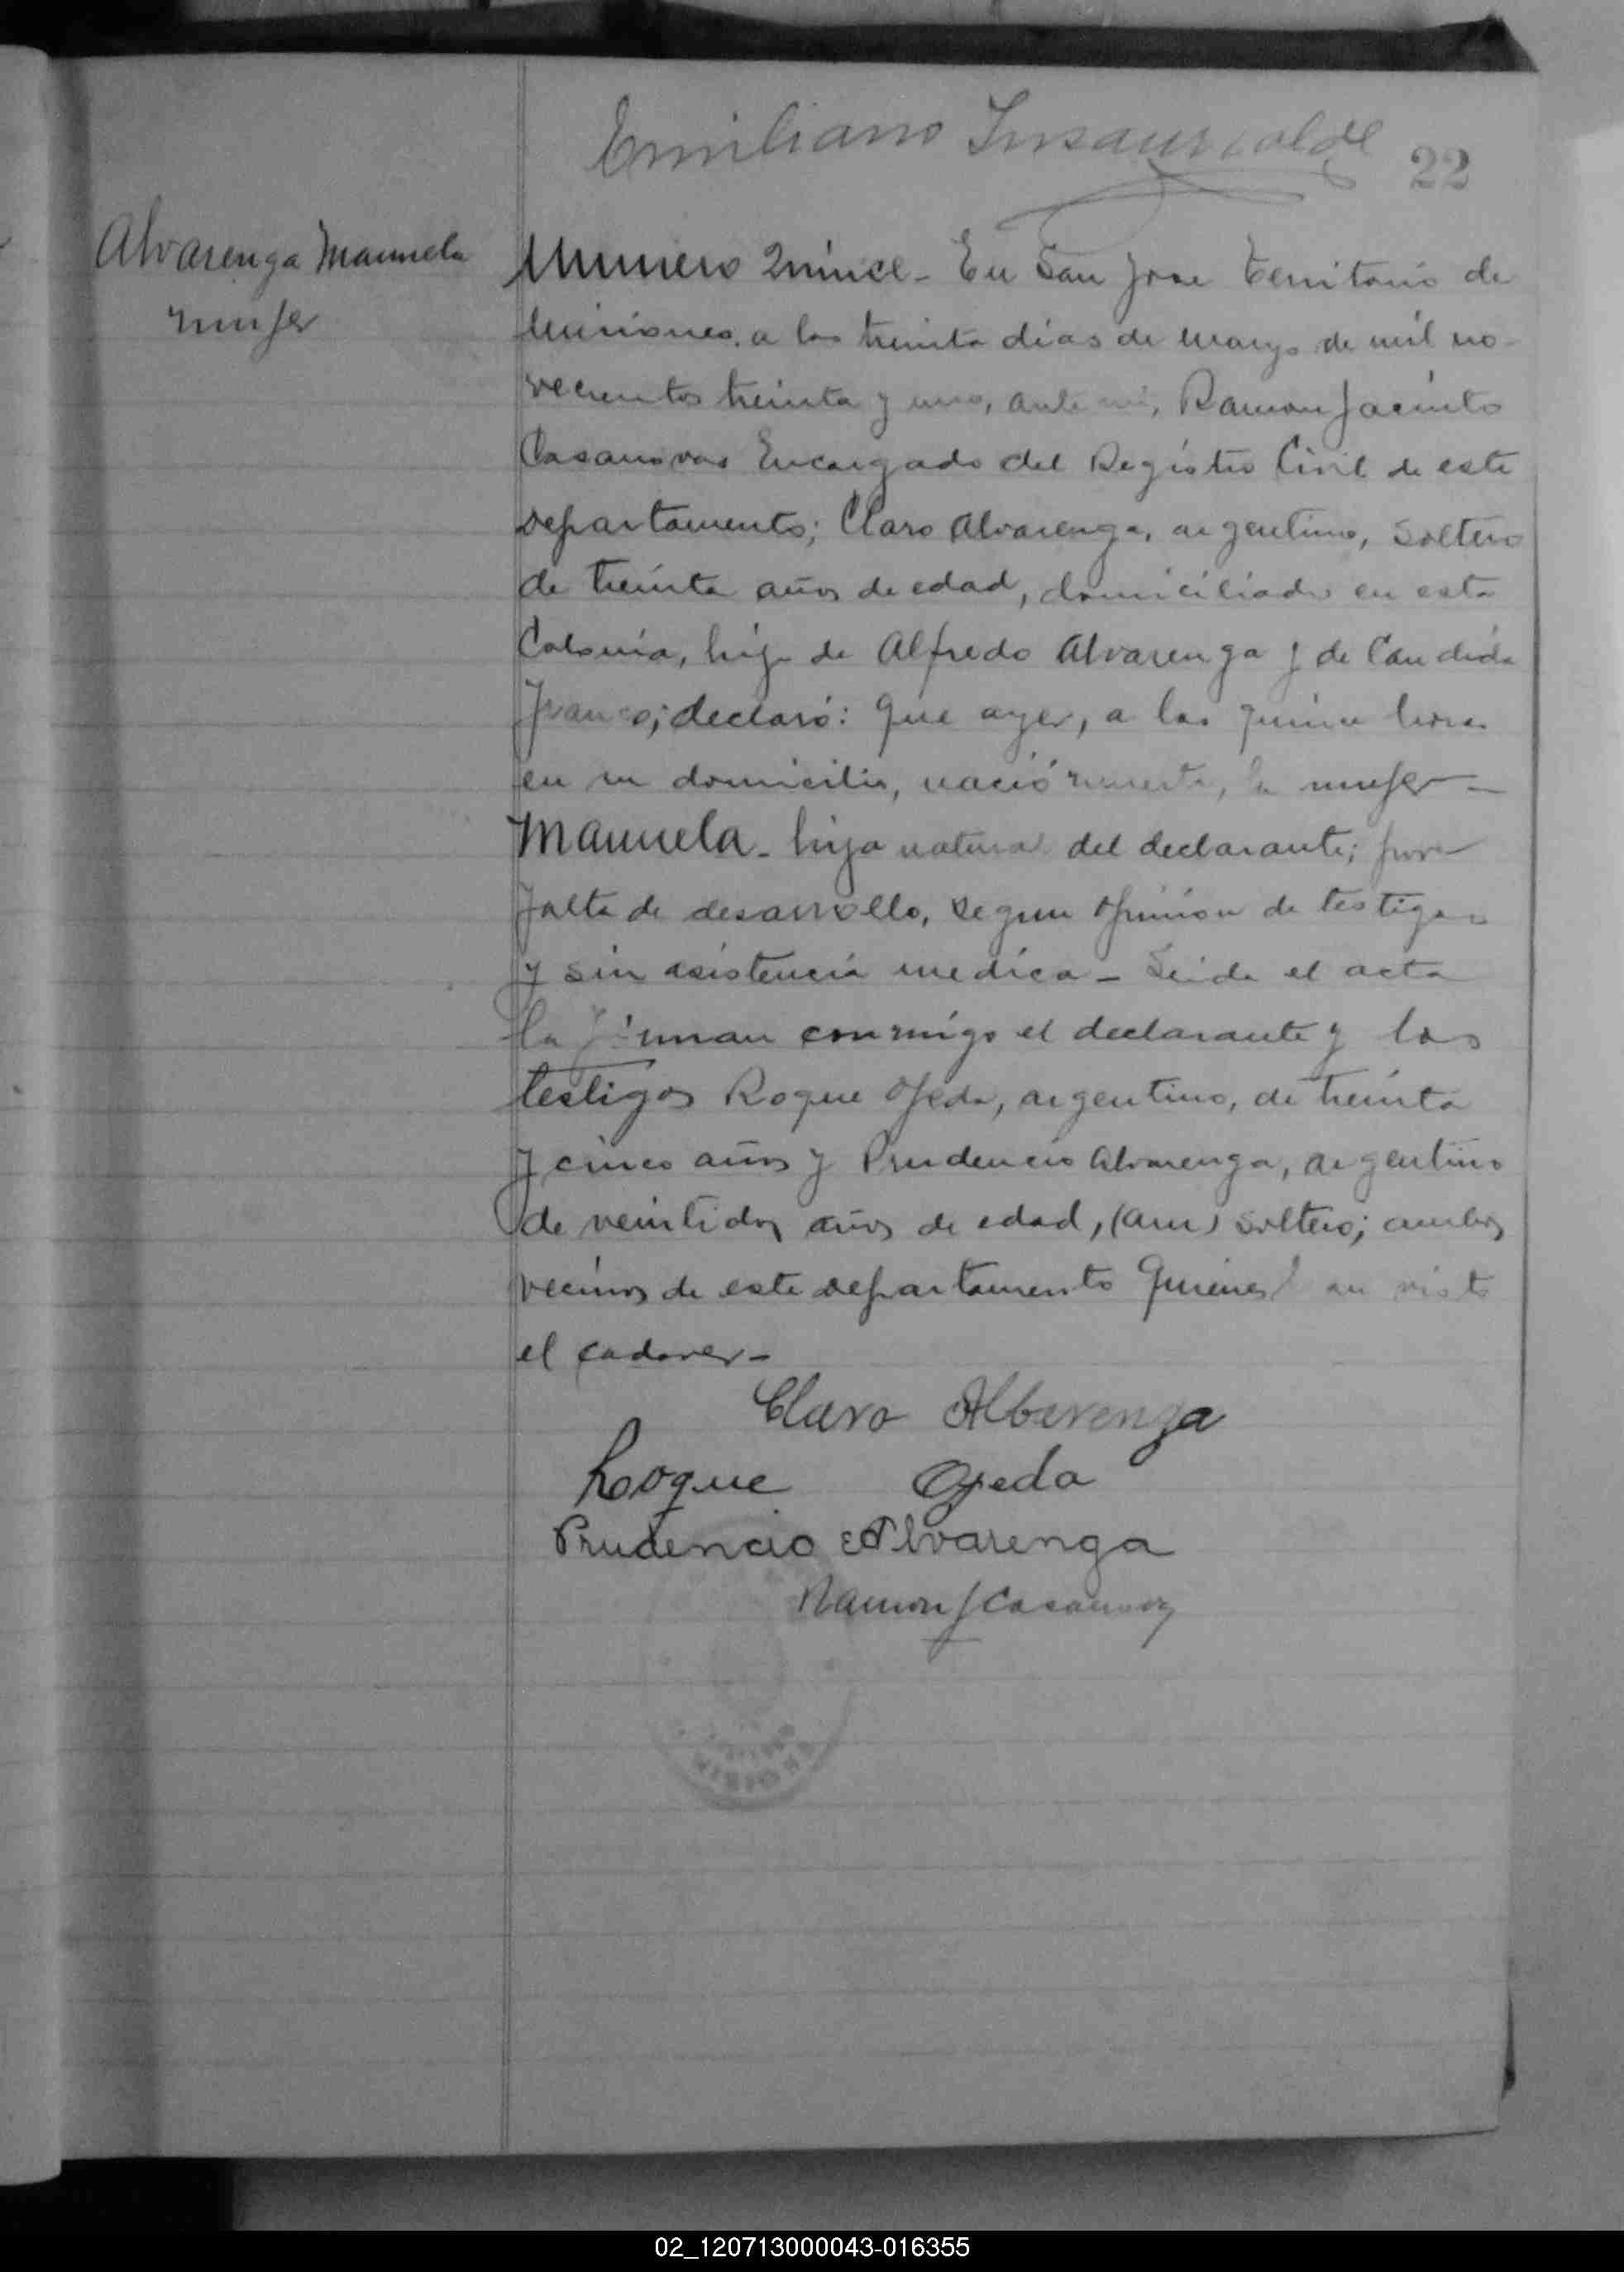 Emiliano Insaurralde
22
Alvarenga Manuela
mujer
Numero Quince - En San Jose Territorio de
Misiones, a los treinta dias de marzo de mil no-
vecientos treinta y uno, ante mi, Ramon Jacinto
Casanovas Encargado del Registro Civil de este
departamento; Claro Alvarenga, argentino, soltero
de treinta años de edad, domiciliado en esta
Colonia, hijo de Alfredo Alvarenga y de Candida
Franco; declaró: Que ayer, a las quince horas
en su domicilio, nació muerta, la mujer -
Manuela - hija natural del declarante; por
falta de desarrollo, segun opinion de testigos
y sin asistencia medica - Leida el acta
la firman conmigo el declarante y los
testigos Roque Ojeda, argentino, de treinta
y cinco años y Prudencio Alvarenga, argentino
de veintidos años de edad, soltero; ambos
vecinos de este departamento quienes han visto
el cadaver -
Claro Alberenga
Roque Ojeda
Prudencio Alvarenga
Ramon J Casanovas
02_120713000043-016355